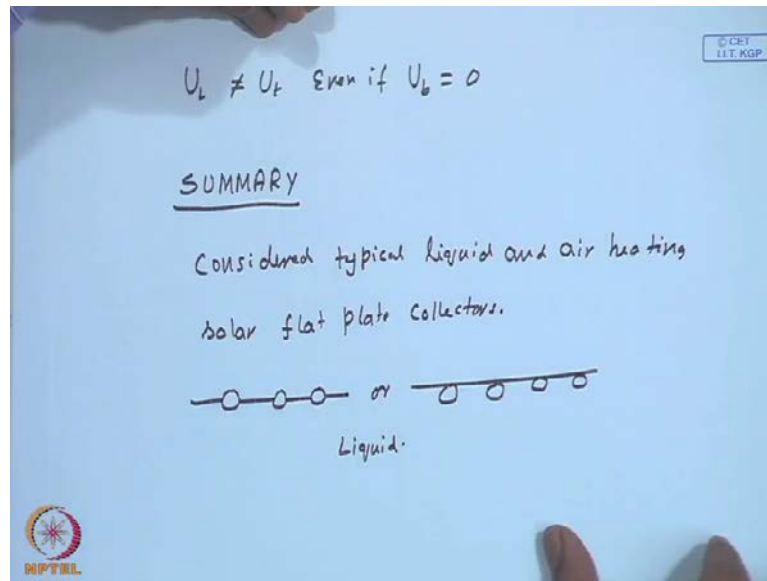 © CET
I.I.T. KGP
U_L ≠ U_t Even if U_b = 0
SUMMARY
Considered typical liquid and air heating
solar flat plate collectors.
or
Liquid.
NPTEL